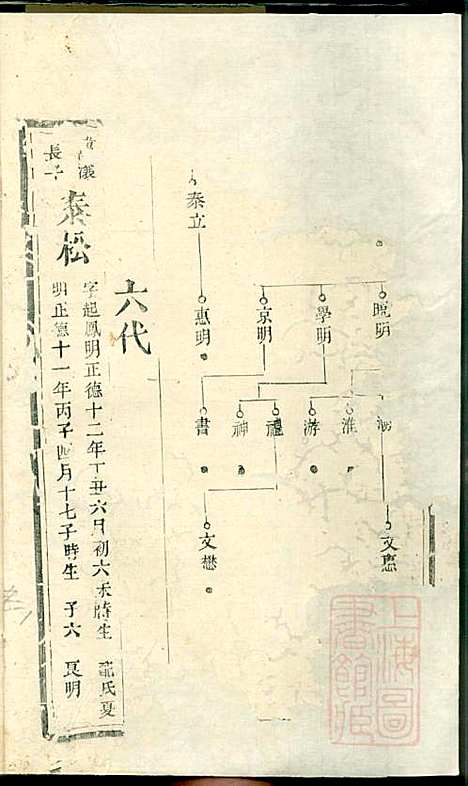 泰立
曉明
學明
京明
惠明
淮
游
禮
神
書
文懋
六代
字起鳳明正德十二年丁丑六月初六未時生 龍氏夏
長子
泰松
明正德十一年丙子四月十七子時生 子六 良明
上海圖書館